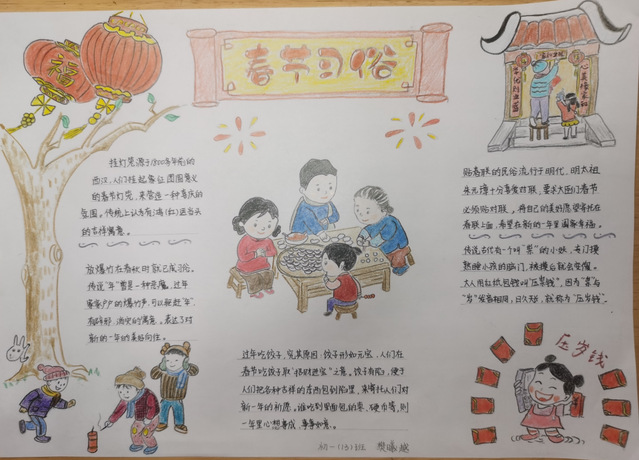 春节习俗
福
挂灯笼源于1800多年前的
西汉，人们挂起象征团圆意义
的春节灯笼，来营造一种喜庆的
氛围。传统上认为有鸿(红)运当头
的吉祥寓意。
放爆竹在春秋时就已成习俗。
传说"年"曾是一种恶魔，过年
家家户户的爆竹声，可以驱赶"年"，
有辟邪、消灾的寓意。表达了对
新的一年的美好向往。
过年吃饺子，究其原因：饺子形如元宝，人们在
春节吃饺子取"招财进宝"之意，饺子有馅，便于
人们把各种吉祥的东西包到馅里，来寄托人们对
新一年的祈愿。谁吃到里面包的枣、硬币等，则
一年里心想事成，事事如意。
贴春联的民俗流行于明代，明太祖
朱元璋十分喜爱对联，要求大臣们春节
必须贴对联，将自己的美好愿望寄托在
春联上面，希望在新的一年里国泰丰裕。
传说古代有一个叫"祟"的小妖，专门摸
熟睡小孩的脑门，被摸后就会变傻。
大人用红纸包钱叫"压祟钱"，因为"祟"与
"岁"发音相同，日久天长，就称为"压岁钱"。
压岁钱
初一(15)班